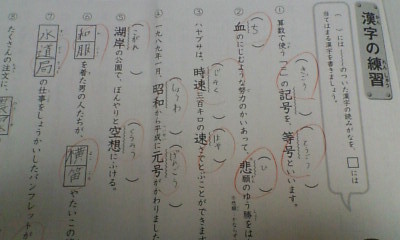 漢字の練習
( )には――のついた漢字の読みがなを、□には
当てはまる漢字を書きましょう。
① 算数で使う「＝」の記号を、等号といいます。
(きごう) (とうごう)
② 血のにじむような努力のかいあって、悲願のゆう勝をは
(ち) (ひ)
③ ハヤブサは、時速三百キロの速さでとぶことができます
(じそく) (はや)
④ 一九八九年一月、昭和から平成に元号がかわりました
(しょうわ) (げんごう)
⑤ 湖岸の公園で、ぼんやりと空想にふける。
(こがん) (くうそう)
⑥ 和服を着た男の人たちが、横笛
⑦ 水道局の仕事をしょうかいしたパンフレットが
⑧ たくさんの注文に、